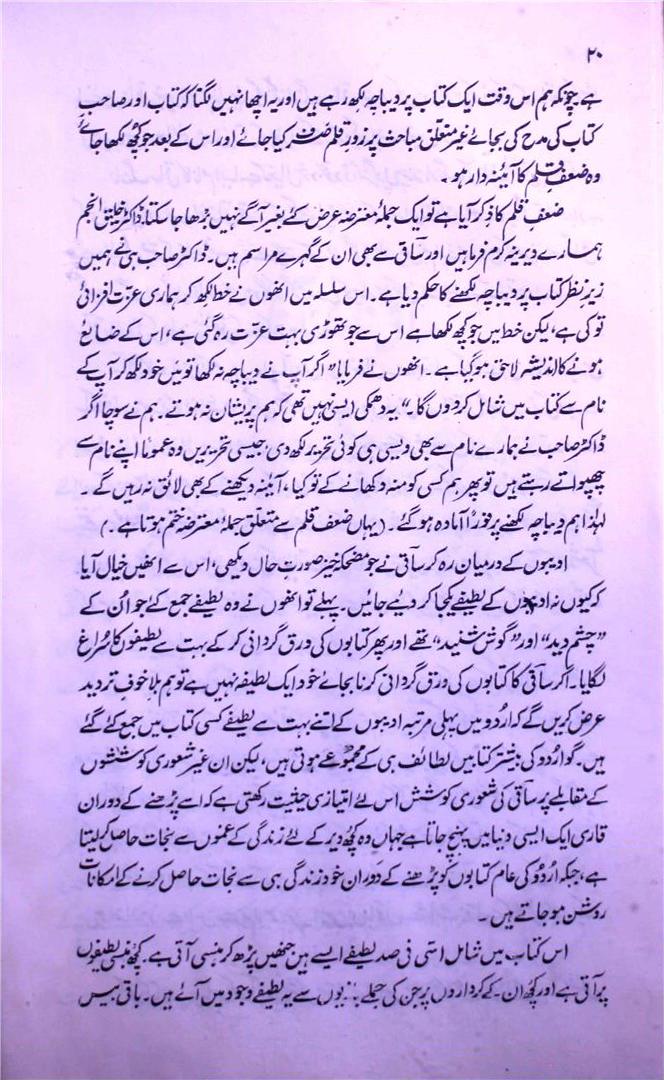 ۲۰
ہے چونکہ ہم اس وقت ایک کتاب پر دیباچہ لکھ رہے ہیں اور یہ اچھا نہیں لگتا کہ کتاب اور صاحب
کتاب کی مدح کی بجائے غیر متعلق مباحث پر زورِ قلم صَرف کیا جائے اور اس کے بعد جو کچھ لکھا جائے
وہ ضعفِ قلم کا آئینہ دار ہو۔
ضعفِ قلم کا ذکر آیا ہے تو ایک جملۂ معترضہ عرض کئے بغیر آگے نہیں بڑھا جا سکتا، ڈاکٹر خلیق انجم
ہمارے دیرینہ کرم فرما ہیں اور ساقی سے بھی ان کے گہرے مراسم ہیں۔ ڈاکٹر صاحب ہی نے ہمیں
زیرِ نظر کتاب پر دیباچہ لکھنے کا حکم دیا ہے۔ اس سلسلہ میں انھوں نے خط لکھ کر ہماری عزت افزائی
تو کی ہے، لیکن خط میں جو کچھ لکھا ہے اس سے جو تھوڑی بہت عزت رہ گئی ہے، اس کے ضائع
ہونے کا اندیشہ لاحق ہو گیا ہے۔ انھوں نے فرمایا "اگر آپ نے دیباچہ نہ لکھا تو میں خود لکھ کر آپ کے
نام سے کتاب میں شامل کر دوں گا۔" یہ دھمکی ایسی نہیں تھی کہ ہم پریشان نہ ہوتے۔ ہم نے سوچا اگر
ڈاکٹر صاحب نے ہمارے نام سے بھی ویسی ہی کوئی تحریر لکھ دی جیسی تحریریں وہ عموماً اپنے نام سے
چھپواتے رہتے ہیں تو پھر ہم کسی کو منہ دکھانے کے تو کیا، آئینہ دیکھنے کے بھی لائق نہ رہیں گے۔
لہٰذا ہم دیباچہ لکھنے پر فوراً آمادہ ہو گئے۔ (یہاں ضعف قلم سے متعلق جملۂ معترضہ ختم ہوتا ہے۔)
ادیبوں کے درمیان رہ کر ساقی نے جو مضحکہ خیز صورتِ حال دیکھی، اس سے انھیں خیال آیا
کہ کیوں نہ ادیبوں کے لطیفے یکجا کر دیے جائیں۔ پہلے تو انھوں نے وہ لطیفے جمع کئے جو اُن کے
"چشم دید" اور "گوش شنید" تھے اور پھر کتابوں کی ورق گردانی کر کے بہت سے لطیفوں کا سُراغ
لگایا۔ اگر ساقی کا کتابوں کی ورق گردانی کرنا بجائے خود ایک لطیفہ نہیں ہے تو ہم بلا خوفِ تردید
عرض کریں گے کہ اردو میں پہلی مرتبہ ادیبوں کے اتنے بہت سے لطیفے کسی کتاب میں جمع کئے گئے
ہیں۔ گو اردو کی بیشتر کتابیں لطائف ہی کے مجموعے ہوتی ہیں، لیکن ان غیر شعوری کوششوں
کے مقابلے پر ساقی کی شعوری کوشش اس لئے امتیازی حیثیت رکھتی ہے کہ اسے پڑھنے کے دوران
قاری ایک ایسی دنیا میں پہنچ جاتا ہے جہاں وہ کچھ دیر کے لئے زندگی کے غموں سے نجات حاصل کر لیتا
ہے، جبکہ اردو کی عام کتابوں کو پڑھنے کے دَوران خود زندگی ہی سے نجات حاصل کرنے کے امکانات
روشن ہو جاتے ہیں۔
اس کتاب میں شامل اسّی فی صد لطیفے ایسے ہیں جنھیں پڑھ کر ہنسی آتی ہے۔ کچھ ہنسی لطیفوں
پر آتی ہے اور کچھ ان کے کرداروں پر جن کی جملے سے یہ لطیفے وجود میں آئے ہیں۔ باقی بیس